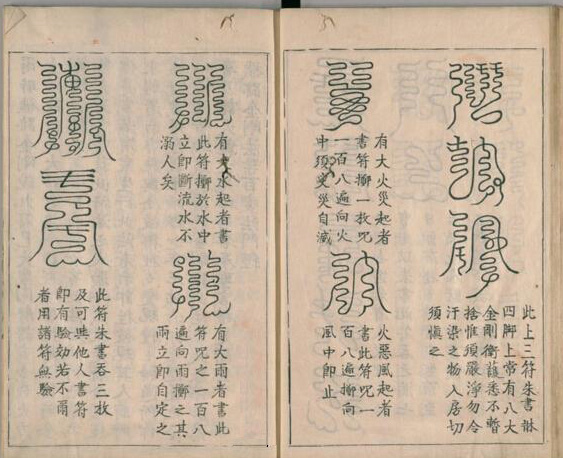 此上三符朱書牀
四脚上常有八大
金剛衞護悉不暫
捨惟須嚴淨勿令
汙染之物入房切
須慎之
有大火災起者
書符擲一枚呪
一百八遍向火
中須臾災自滅
火惡風起者
書此符呪一
百八遍擲向
風中即止
有大水起者書
此符擲於水中
立即斷流水不
溺人矣
有大雨者書此
符呪之一百八
遍向雨擲之其
雨立即自定之
此符朱書吞三枚
及可與他人書符
即有驗効若不爾
者用諸符無驗